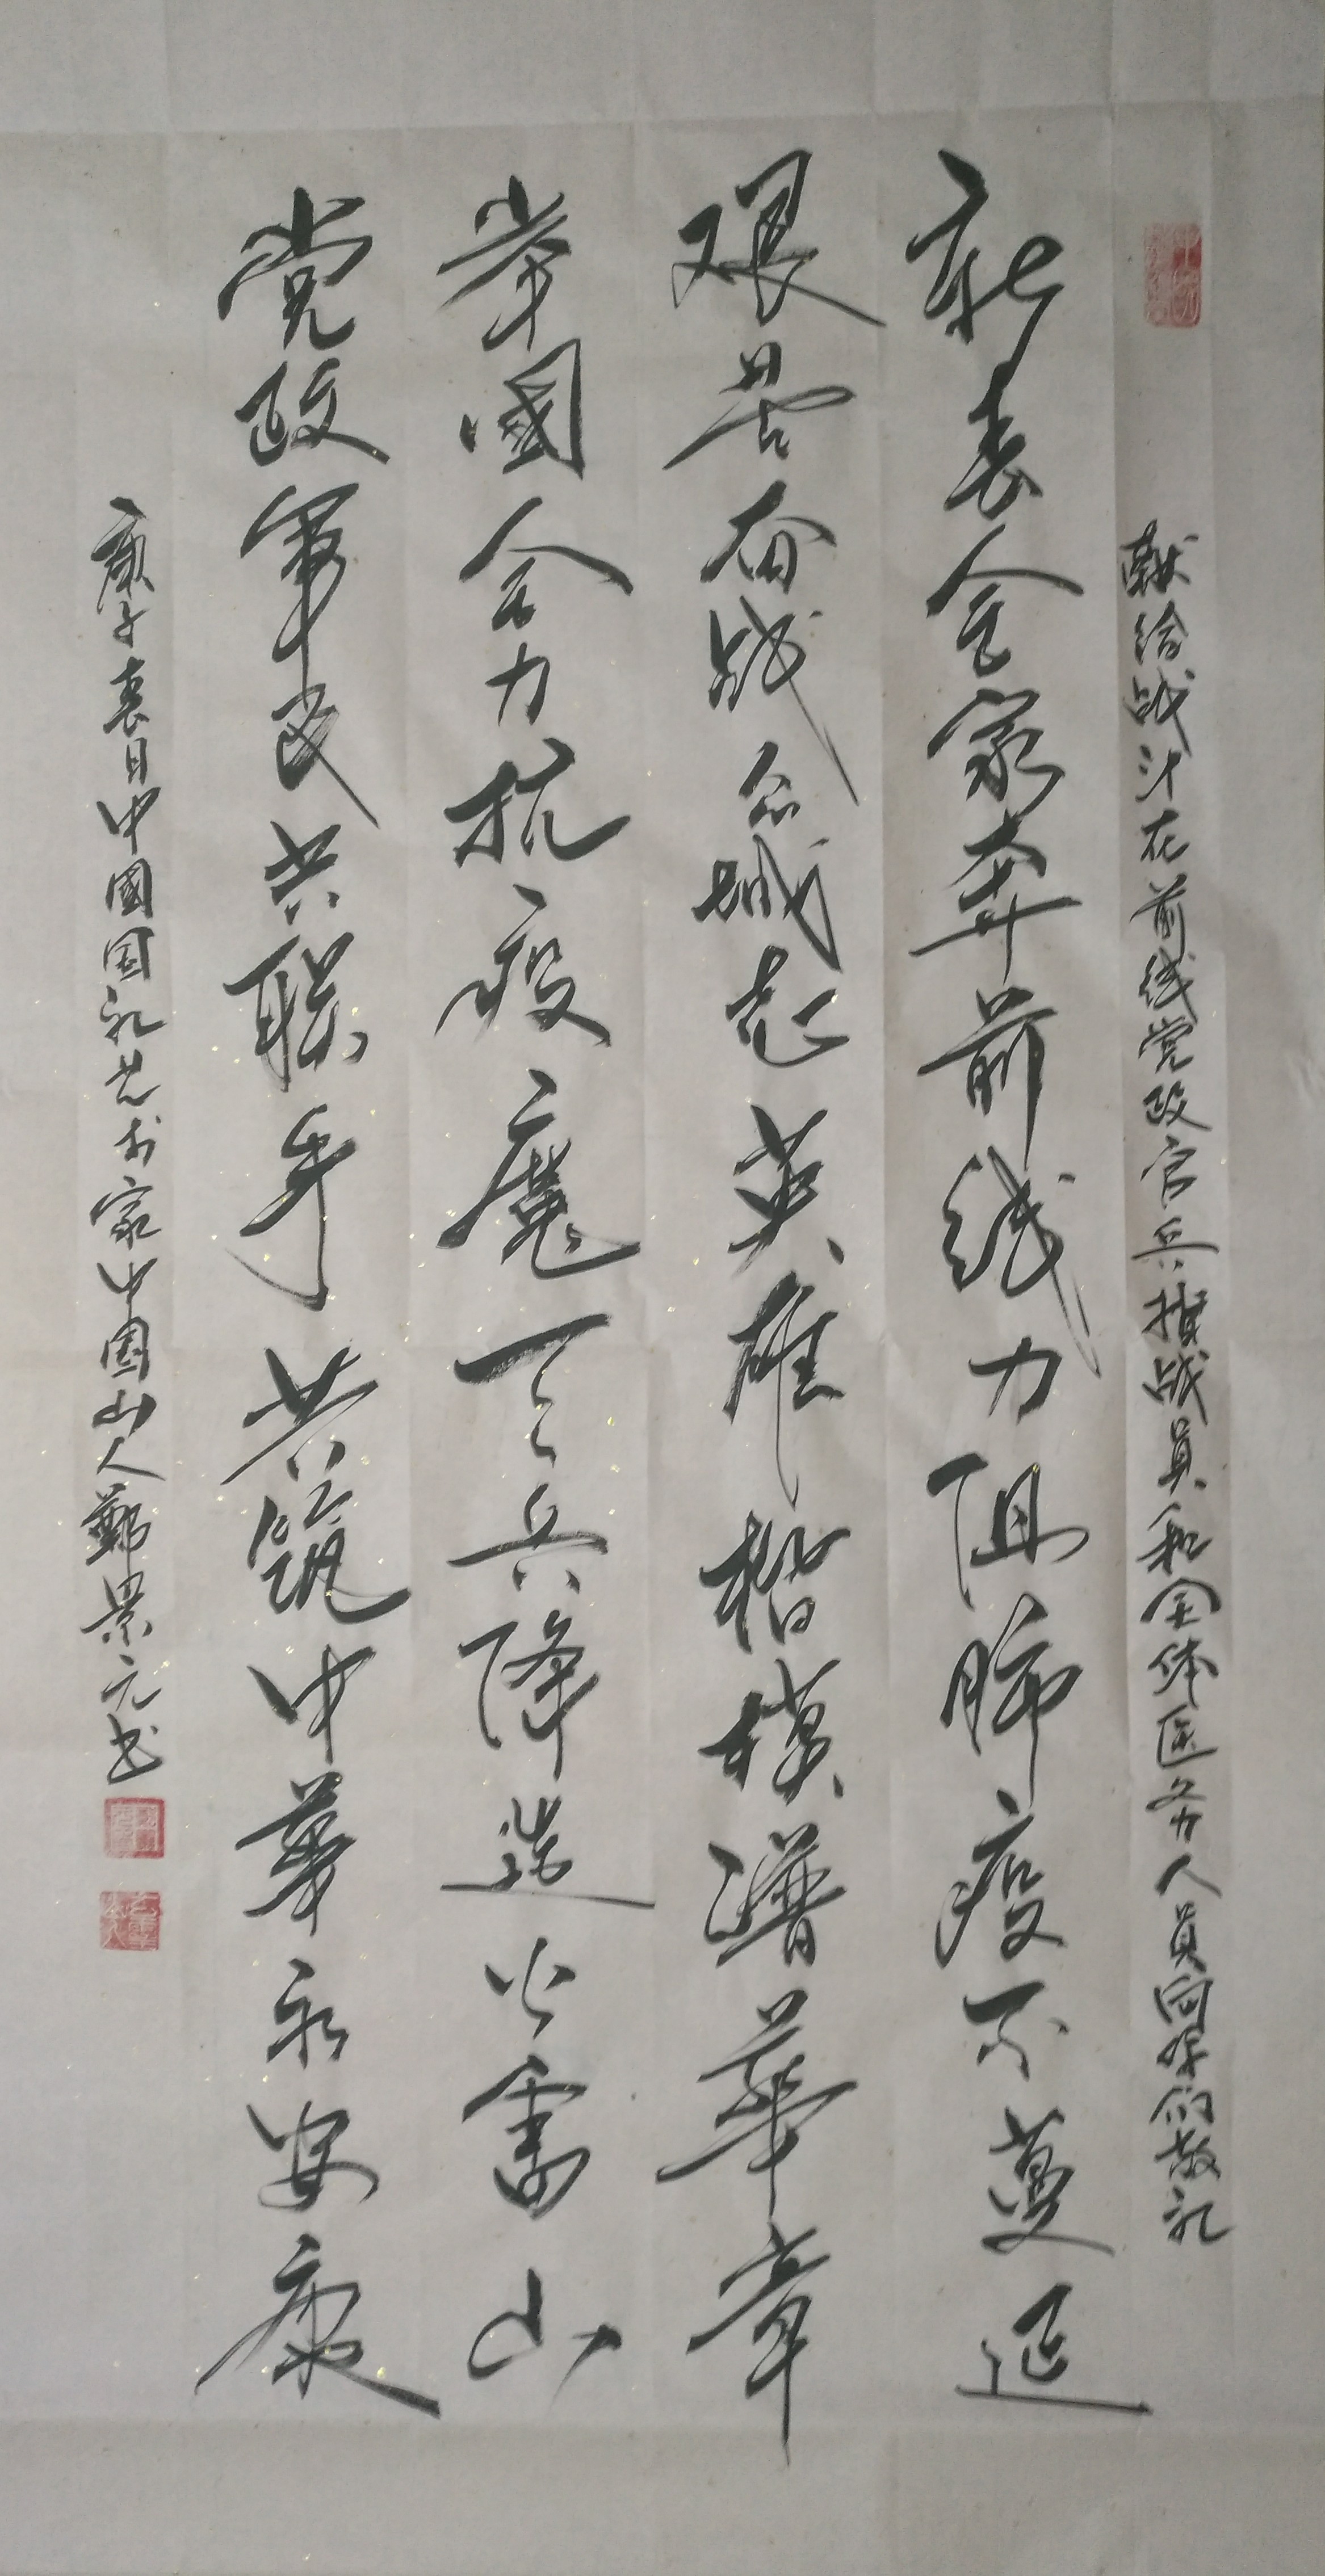 献给战斗在前线党政官兵指战员和全体医务人员向你们敬礼
新春舍家奔前线力阻肺疫不蔓延
艰苦奋战众城起英雄楷模谱华章
举國合力抗疫魔天兵降造火雷山
党政军民共联手共筑中华永安康
庚子春日中國国礼艺术家中国山人鄭景元书